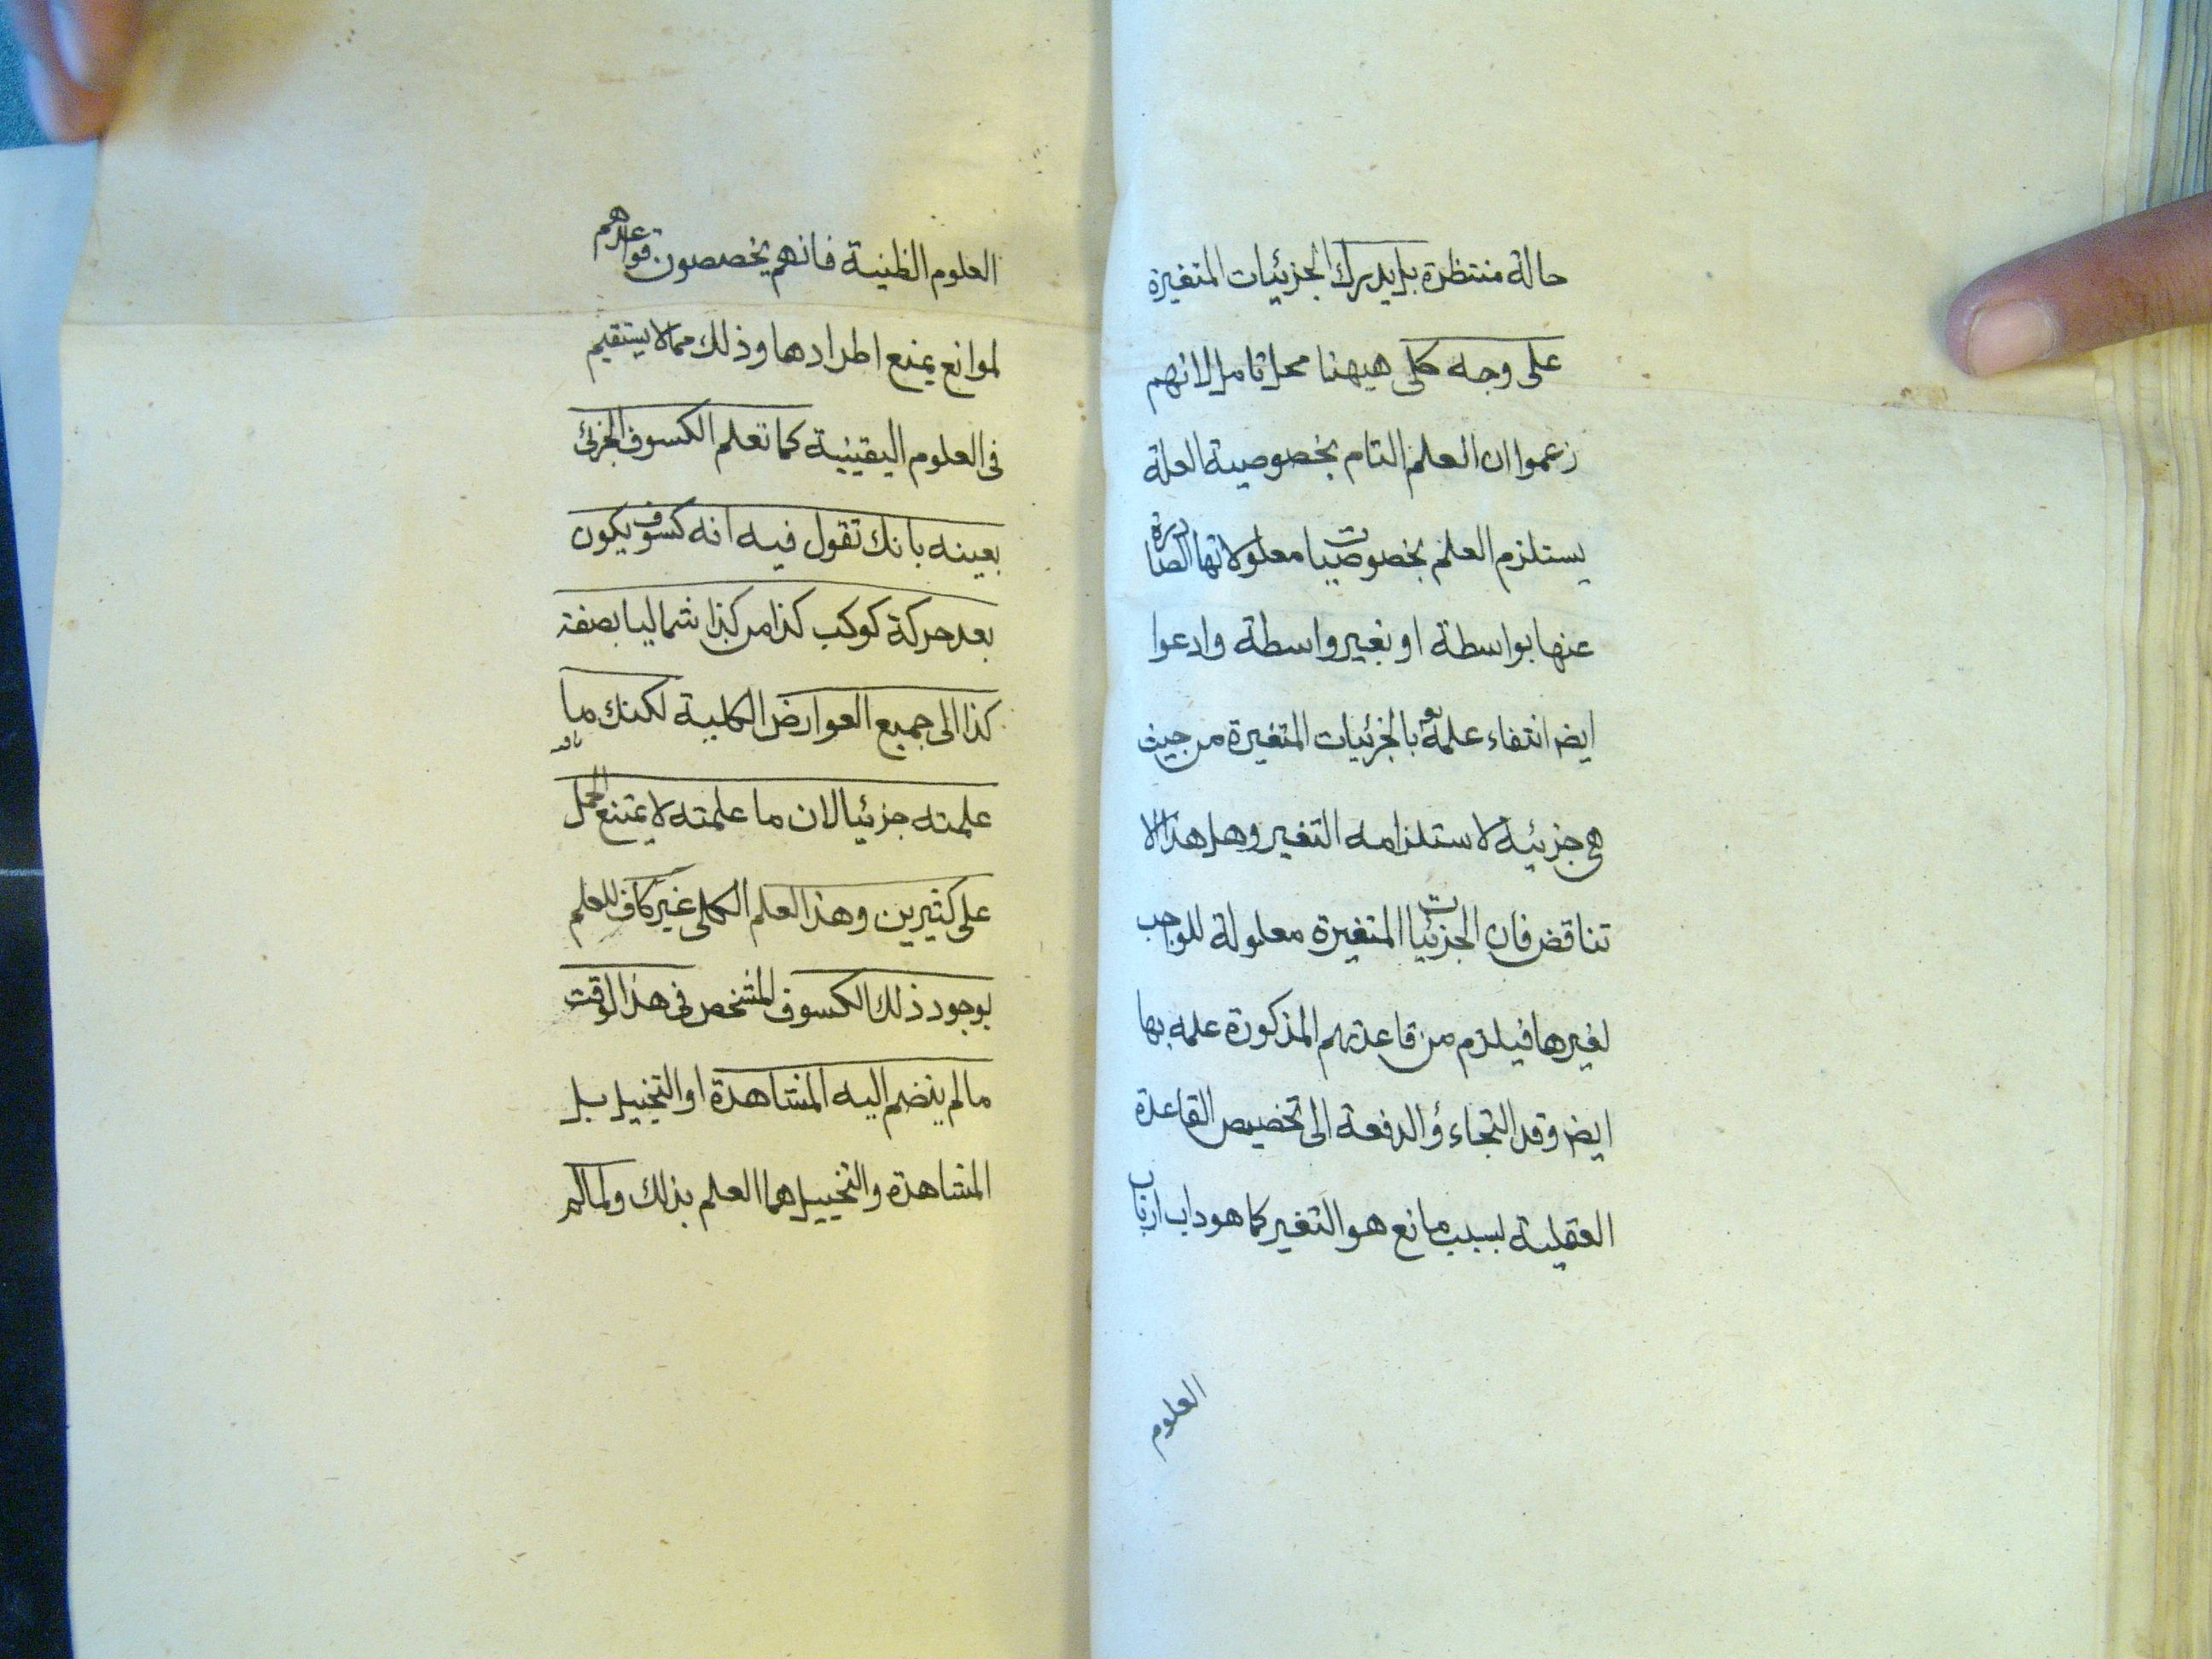 حالة منتظرة بل يدرك الجزئيات المتغيرة
على وجه كلى هيهنا محل تامل لانهم
زعموا ان العلم التام بخصوصية العلة
يستلزم العلم بخصوصيات معلولاتها الصادرة
عنها بواسطة او بغير واسطة وادعوا
ايض انتفاء علمه بالجزئيات المتغيرة من حيث
هى جزئية لاستلزامه التغير وهل هذا الا
تناقض فان الجزئيات المتغيرة معلولة للواجب
لغيرها فيلزم من قاعدتهم المذكورة علمه بها
ايض وقد التجاءؤا لدفعه الى تخصيص القاعدة
العقلية بسبب مانع هو التغير كما هو داب ارباب
العلوم
العلوم الظنية فانهم يخصصون قواعدهم
لموانع يمنع اطرادها وذلك مما لا يستقيم
فى العلوم اليقينية كما تعلم الكسوف الجزئى
بعينه بانك تقول فيه انه كسوف يكون
بعد حركة كوكب كذا من كذا شماليا بصفة
كذا الى جميع العوارض الكلية لكنك ما
علمته جزئيا لان ما علمته لا يمتنع الحمل
على كثيرين وهذا العلم الكلى غير كاف للعلم
بوجود ذلك الكسوف المشخص فى هذا الوقت
ما لم ينضم اليه المشاهدة او التخييل بل
المشاهدة والتخييل هما العلم بذلك ولما لم